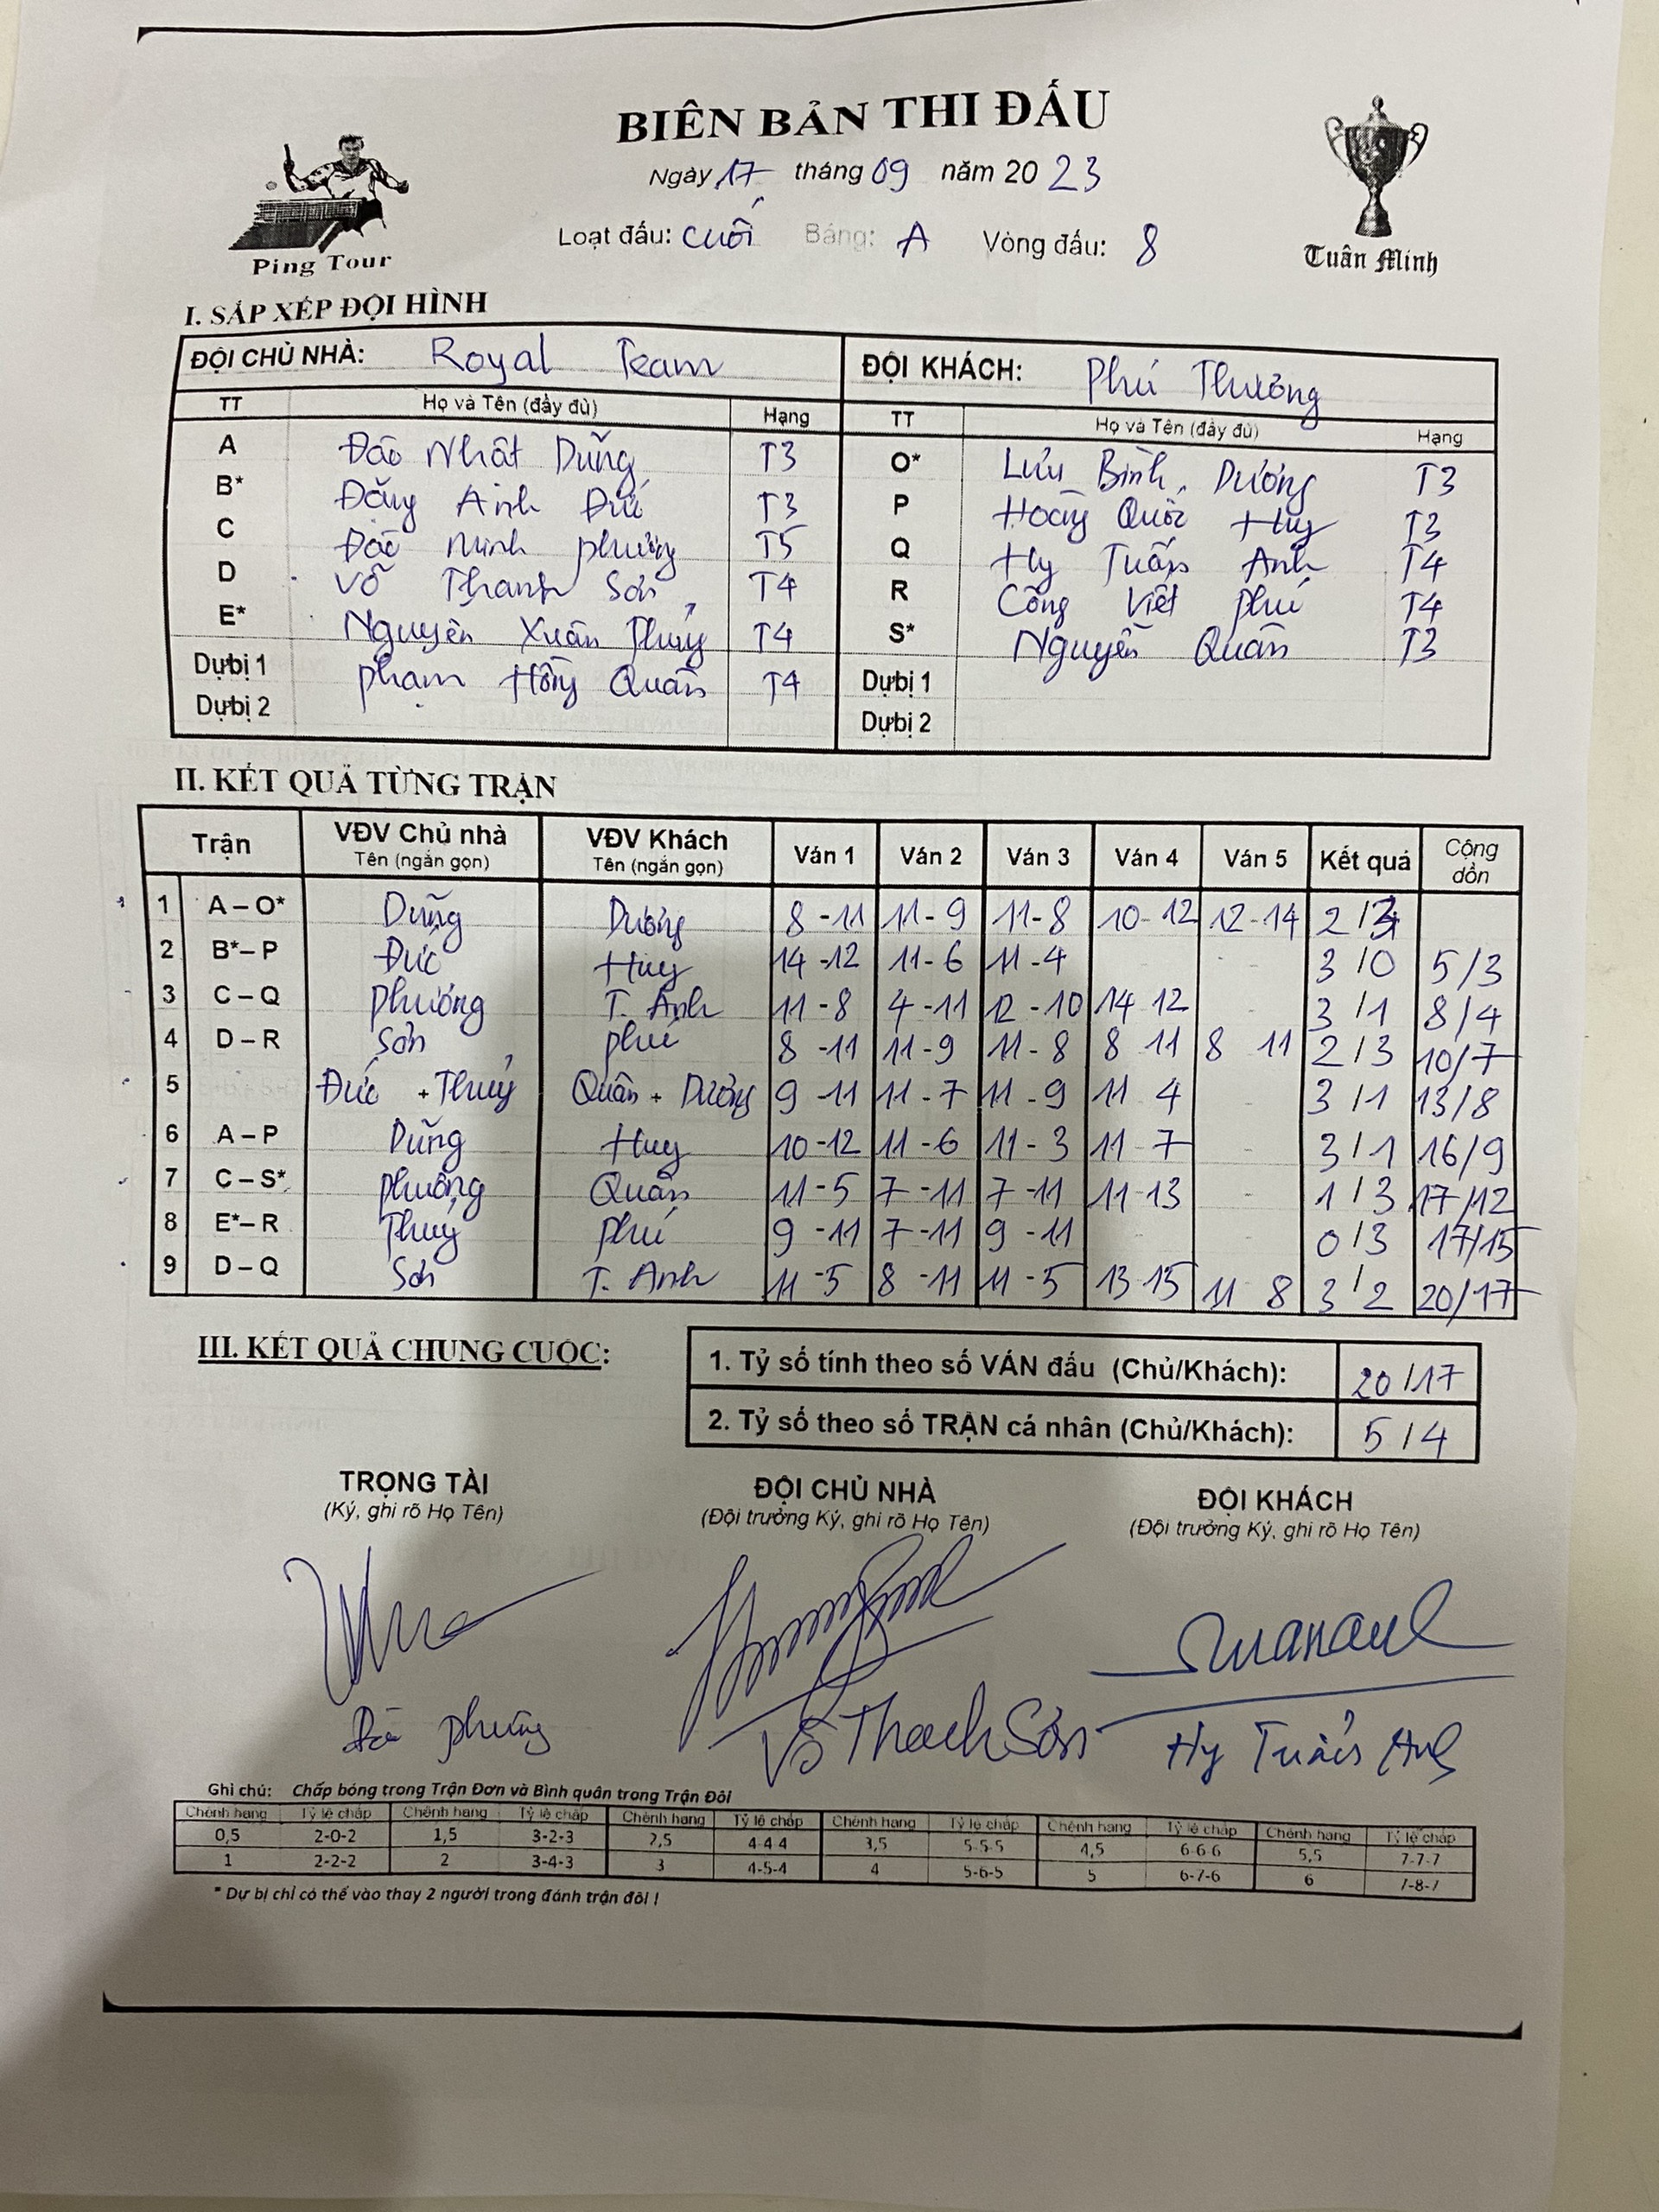 BIÊN BẢN THI ĐẤU
Ngày 17 tháng 09 năm 20 23
Loạt đấu: cuối Bảng: A Vòng đấu: 8
Ping Tour
Tuấn Minh
I. SẮP XẾP ĐỘI HÌNH
ĐỘI CHỦ NHÀ: Royal Team ĐỘI KHÁCH: Phú Thượng
TT Họ và Tên (đầy đủ) Hạng TT Họ và Tên (đầy đủ) Hạng
A Đào Nhật Dũng T3 O* Lưu Bình Dương T3
B* Đặng Anh Đức T3 P Hoàng Quốc Huy T3
C Đào Minh Phương T5 Q Hy Tuấn Anh T4
D Võ Thanh Sơn T4 R Công Viết Phú T4
E* Nguyễn Xuân Thuỷ T4 S* Nguyễn Quân T3
Dự bị 1 Phạm Hồng Quân T4 Dự bị 1
Dự bị 2 Dự bị 2
II. KẾT QUẢ TỪNG TRẬN
Trận VĐV Chủ nhà VĐV Khách Ván 1 Ván 2 Ván 3 Ván 4 Ván 5 Kết quả Cộng dồn
Tên (ngắn gọn) Tên (ngắn gọn)
1 A – O* Dũng Dương 8 -11 11 - 9 11- 8 10- 12 12-14 2/3
2 B*– P Đức Huy 14 -12 11- 6 11-4 - - 3/0 5/3
3 C – Q Phương T. Anh 11 - 8 4 -11 12 - 10 14 12 3/1 8/4
4 D – R Sơn Phú 8 -11 11-9 11- 8 8 11 8 11 2/3 10/7
5 Đức + Thuỷ Quân + Dương 9 -11 11 - 7 11 - 9 11 4 - 3/1 13/8
6 A – P Dũng Huy 10-12 11 - 6 11 - 3 11 - 7 - 3/1 16/9
7 C – S* Phương Quân 11 - 5 7 -11 7 -11 11-13 - 1/3 17/12
8 E*– R Thuỷ Phú 9 -11 7 -11 9 -11 - - 0/3 17/15
9 D – Q Sơn T. Anh 11 -5 8 -11 11 - 5 13-15 11 8 3/2 20/17
III. KẾT QUẢ CHUNG CUỘC:
1. Tỷ số tính theo số VÁN đấu (Chủ/Khách): 20/17
2. Tỷ số theo số TRẬN cá nhân (Chủ/Khách): 5/4
TRỌNG TÀI ĐỘI CHỦ NHÀ ĐỘI KHÁCH
(Ký, ghi rõ Họ Tên) (Đội trưởng Ký, ghi rõ Họ Tên) (Đội trưởng Ký, ghi rõ Họ Tên)
Võ Thanh Sơn Hy Tuấn Anh
Ghi chú: Chấp bóng trong Trận Đơn và Bình quân trong Trận Đôi
Chênh hạng Tỷ lệ chấp Chênh hạng Tỷ lệ chấp Chênh hạng Tỷ lệ chấp Chênh hạng Tỷ lệ chấp Chênh hạng Tỷ lệ chấp Chênh hạng Tỷ lệ chấp
0,5 2-0-2 1,5 3-2-3 2,5 4-4-4 3,5 5-5-5 4,5 6-6-6 5,5 7-7-7
1 2-2-2 2 3-4-3 3 4-5-4 4 5-6-5 5 6-7-6 6 7-8-7
* Dự bị chỉ có thể vào thay 2 người trong đánh trận đôi !